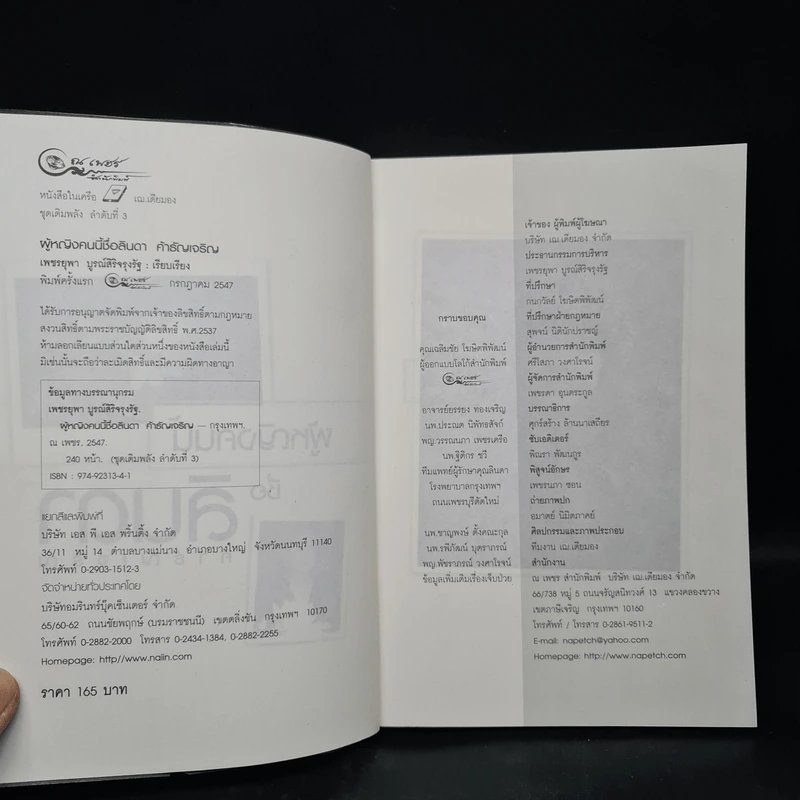 ณ เพชร
สำนักพิมพ์
หนังสือในเครือ เฌ.เดียมอง
ชุดเติมพลัง ลำดับที่ 3
ผู้หญิงคนนี้ชื่อลินดา ค้าธัญเจริญ
เพชรยุพา บูรณ์สิริจรุงรัฐ : เรียบเรียง
พิมพ์ครั้งแรก ณ เพชร กรกฎาคม 2547
ได้รับการอนุญาตจัดพิมพ์จากเจ้าของลิขสิทธิ์ตามกฎหมาย
สงวนสิทธิ์ตามพระราชบัญญัติลิขสิทธิ์ พ.ศ.2537
ห้ามลอกเลียนแบบส่วนใดส่วนหนึ่งของหนังสือเล่มนี้
มิเช่นนั้นจะถือว่าละเมิดสิทธิ์และมีความผิดทางอาญา
ข้อมูลทางบรรณานุกรม
เพชรยุพา บูรณ์สิริจรุงรัฐ.
ผู้หญิงคนนี้ชื่อลินดา ค้าธัญเจริญ — กรุงเทพฯ.
ณ เพชร, 2547.
240 หน้า. (ชุดเติมพลัง ลำดับที่ 3)
ISBN : 974-92313-4-1
แยกสีและพิมพ์ที่
บริษัท เอส พี เอส พริ้นติ้ง จำกัด
36/11 หมู่ 14 ตำบลบางแม่นาง อำเภอบางใหญ่ จังหวัดนนทบุรี 11140
โทรศัพท์ 0-2903-1512-3
จัดจำหน่ายทั่วประเทศโดย
บริษัทอมรินทร์บุ๊คเซ็นเตอร์ จำกัด
65/60-62 ถนนชัยพฤกษ์ (บรมราชชนนี) เขตตลิ่งชัน กรุงเทพฯ 10170
โทรศัพท์ 0-2882-2000 โทรสาร 0-2434-1384, 0-2882-2255
Homepage: http//www.naiin.com
ราคา 165 บาท
กราบขอบคุณ
คุณเฉลิมชัย โฆษิตพิพัฒน์
ผู้ออกแบบโลโก้สำนักพิมพ์
ณ เพชร
อาจารย์ยรรยง ทองเจริญ
นพ.ประณต นิพัทธสัจก์
พญ.วรรณนภา เพชรเครือ
นพ.ฐิติกร ชวี
ทีมแพทย์ผู้รักษาคุณลินดา
โรงพยาบาลกรุงเทพฯ
ถนนเพชรบุรีตัดใหม่
นพ.ชาญพงษ์ ตั้งคณะกุล
นพ.รพีภัฒน์ บุตราภรณ์
พญ.พัชราภรณ์ วงศาโรจน์
ข้อมูลเพิ่มเติมเรื่องเจ็บป่วย
เจ้าของ ผู้พิมพ์ผู้โฆษณา
บริษัท เฌ.เดียมอง จำกัด
ประธานกรรมการบริหาร
เพชรยุพา บูรณ์สิริจรุงรัฐ
ที่ปรึกษา
กนกวัลย์ โฆษิตพิพัฒน์
ที่ปรึกษาฝ่ายกฎหมาย
สุพจน์ นิตินักปราชญ์
ผู้อำนวยการสำนักพิมพ์
ศรีโสภา วงศาโรจน์
ผู้จัดการสำนักพิมพ์
เพชรดา อุนตระกูล
บรรณาธิการ
ศุภร์สร้าง ล้านนาเสถียร
ซับเอดิเตอร์
พิณรา พัฒนกูร
พิสูจน์อักษร
เพชรนภา ซอน
ถ่ายภาพปก
อมาตย์ นิมิตภาคย์
ศิลปกรรมและภาพประกอบ
ทีมงาน เฌ.เดียมอง
สำนักงาน
ณ เพชร สำนักพิมพ์ บริษัท เฌ.เดียมอง จำกัด
66/738 หมู่ 5 ถนนจรัญสนิทวงศ์ 13 แขวงคลองขวาง
เขตภาษีเจริญ กรุงเทพฯ 10160
โทรศัพท์ / โทรสาร 0-2861-9511-2
E-mail: napetch@yahoo.com
Homepage: http://www.napetch.com